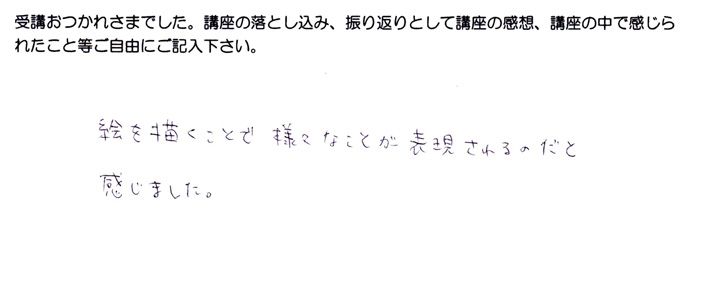 受講おつかれさまでした。講座の落とし込み、振り返りとして講座の感想、講座の中で感じら
れたこと等ご自由にご記入下さい。
絵を描くことで様々なことが表現されるのだと
感じました。